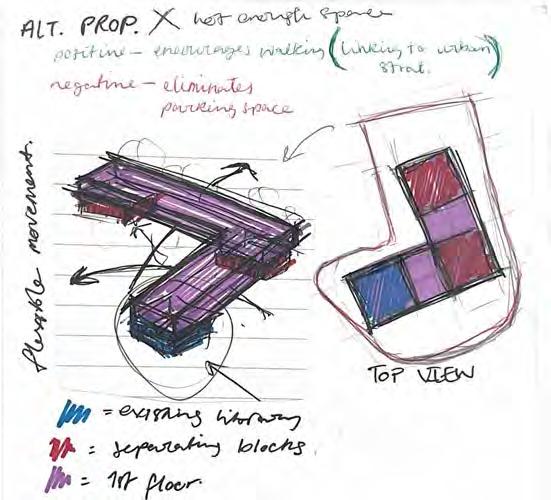 ALT. PROP. X not enough space
positive – encourages walking (linking to urban
strat.)
negative – eliminates
parking space
flexible movement.
TOP VIEW
= existing library
= separating blocks.
= 1st floor.